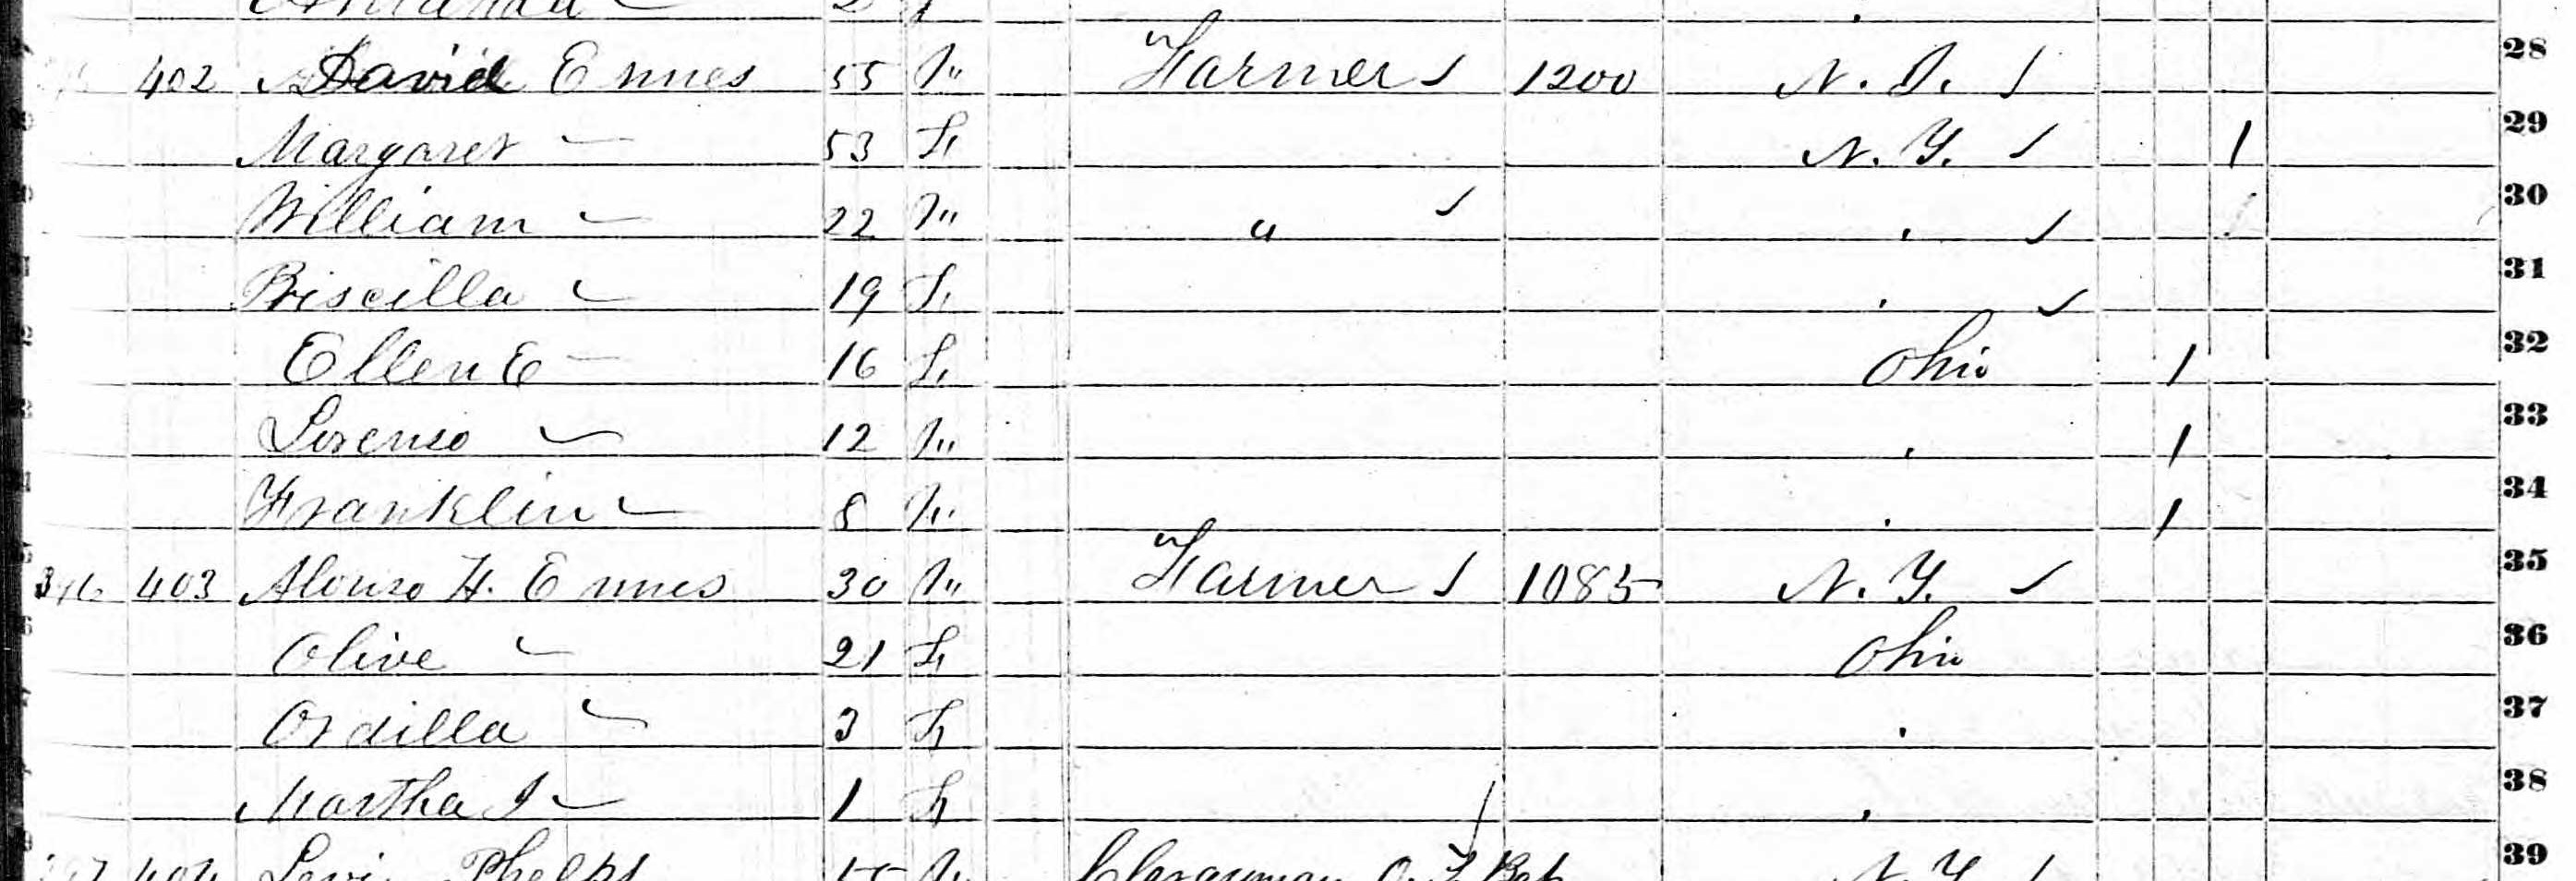 28
402 David Ennes 55 m Farmer ✓ 1200 N. J. ✓
29
Margaret — 53 f N. Y. ✓ 1
30
William — 22 m " ✓ . ✓
31
Priscilla — 19 f . ✓
32
Ellen E — 16 f Ohio 1
33
Lorenso — 12 m . 1
34
Franklin — 8 m . 1
35
396 403 Alonso H. Ennes 30 m Farmer ✓ 1085 N. Y. ✓
36
Olive — 21 f Ohio
37
Ordilla — 3 f .
38
Martha J — 1 f .
39
404 Levi Phelps m Clergyman N. Y. ✓